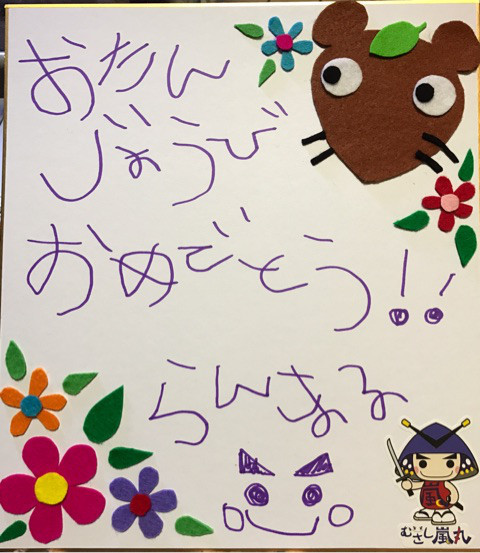 おたん
じょうび
おめでとう!!
らんまる
嵐
むさし嵐丸